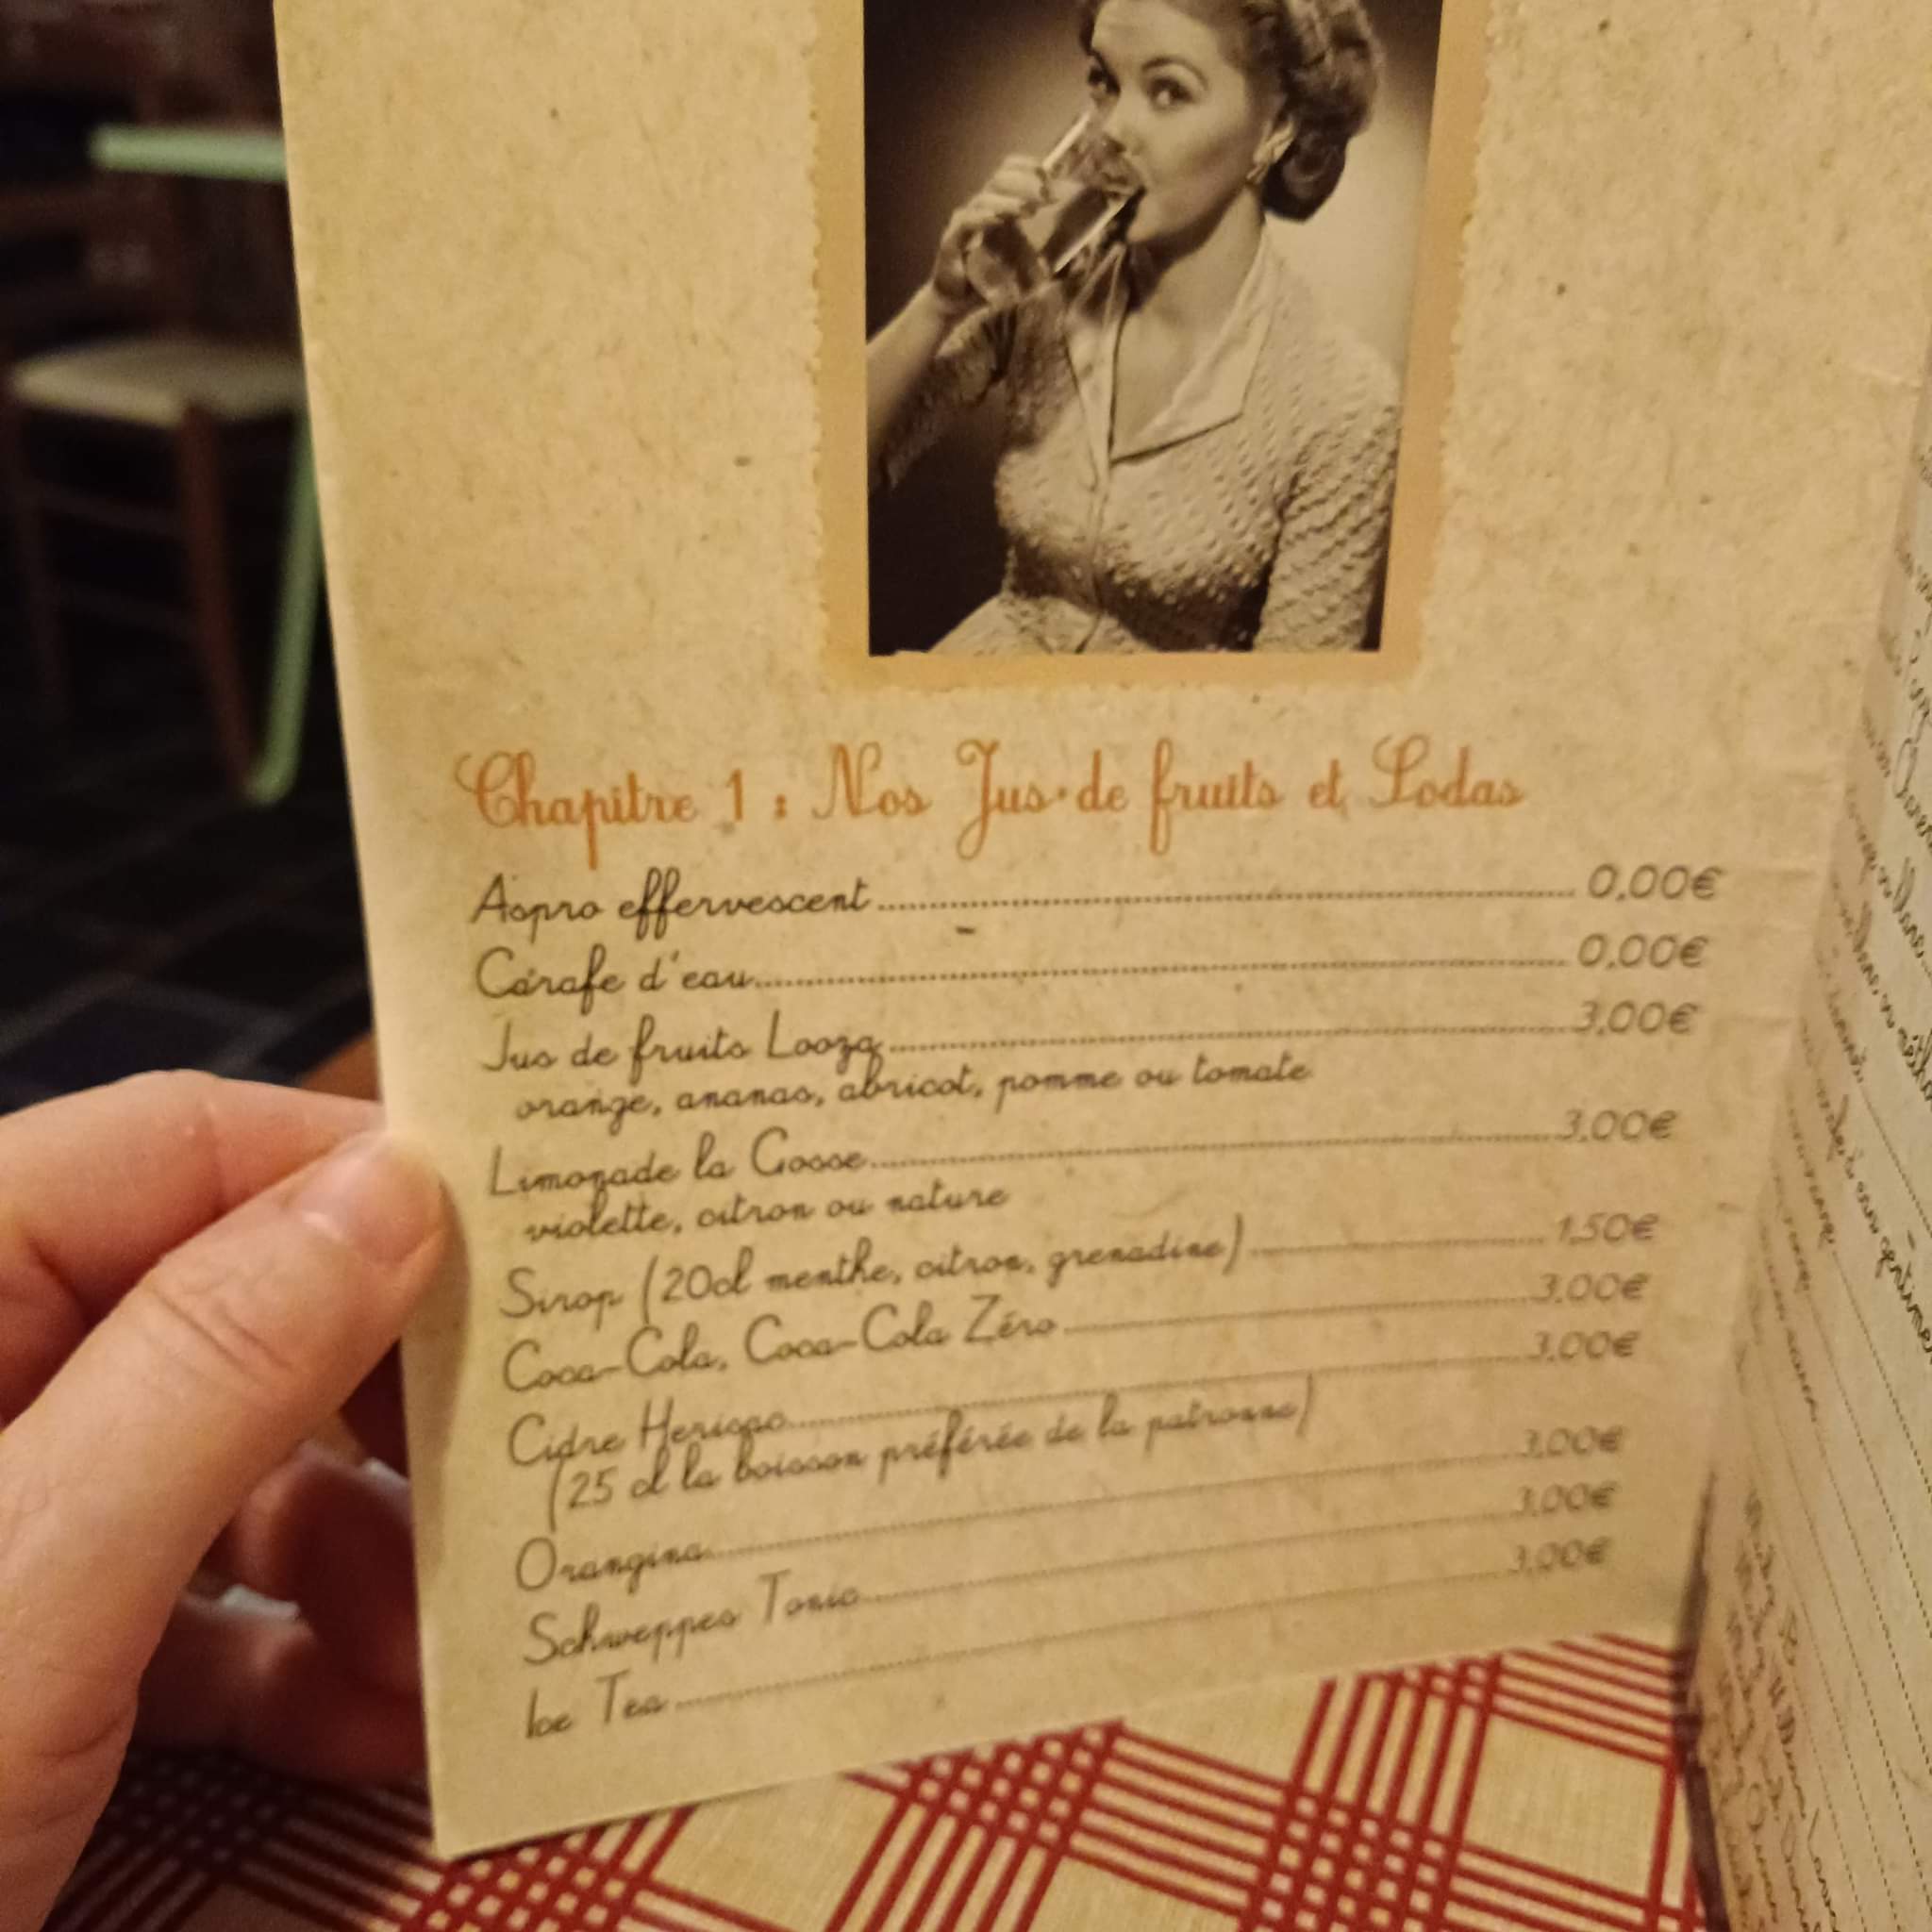 Chapitre 1 : Nos Jus de fruits et Sodas
Aspro effervescent 0,00€
Carafe d'eau 0,00€
Jus de fruits Looza 3,00€
orange, ananas, abricot, pomme ou tomate
Limonade la Gosse 3,00€
violette, citron ou nature
Sirop (20cl menthe, citron, grenadine) 1,50€
Coca-Cola, Coca-Cola Zéro 3,00€
Cidre 3,00€
(25 cl la boisson préférée de la patronne)
Orangina 3,00€
Schweppes Tonic 3,00€
Ice Tea 3,00€